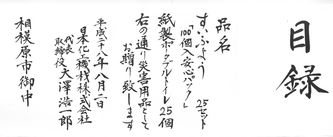 目録
品名
すいふよう 25セット
「100個入安心パック」
紙製ポータブルトイレ 25個
右の通り災害用品として
お贈り致します
平成二十八年八月二日
日本化機材株式会社
代表
取締役 大澤浩一郎
相模原市御中